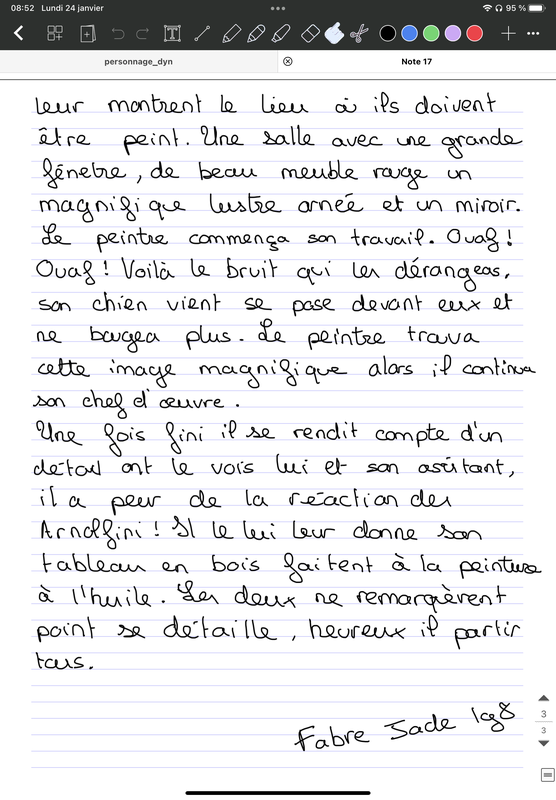 08:52 Lundi 24 janvier
95 %
personnage_dyn
Note 17
leur montrent le lieu où ils doivent
être peint. Une salle avec une grande
fênetre, de beau meuble rouge un
magnifique lustre ornée et un miroir.
Le peintre commença son travail. Ouaf !
Ouaf ! Voilà le bruit qui les dérangeas,
son chien vient se pose devant eux et
ne bougea plus. Le peintre trouva
cette image magnifique alors il continua
son chef d'œuvre.
Une fois fini il se rendit compte d'un
détail ont le vois lui et son
il a peur de la réaction des
Arnolfini ! Il le lui leur donne son
tableau en bois faitent à la peinture
à l'huile. Les deux ne remarquèrent
point se détaille, heureux il partir
tous.
Fabre Jade 1g8
3
3